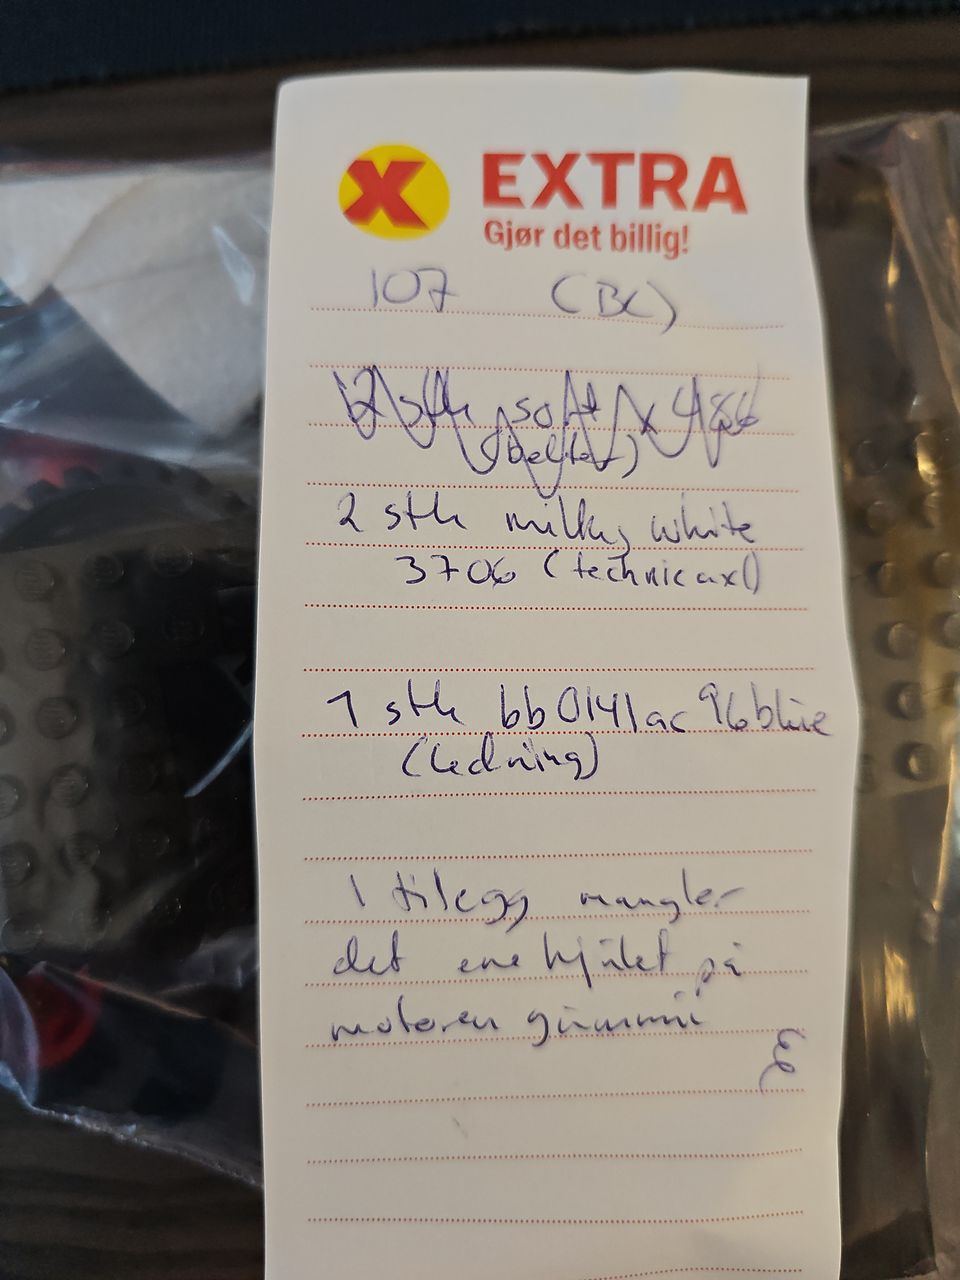 X EXTRA
Gjør det billig!
107 (BC)
12 stk soft x 486
(belter)
2 stk milky white
3706 (technic axl)
1 stk bb0141ac 96blue
(ledning)
I tilegg mangler
det ene hjulet på
motoren gummi